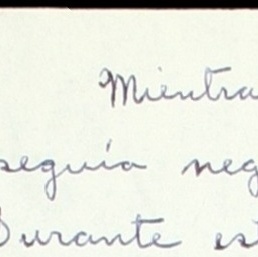 Mientra
seguía neg
Durante est